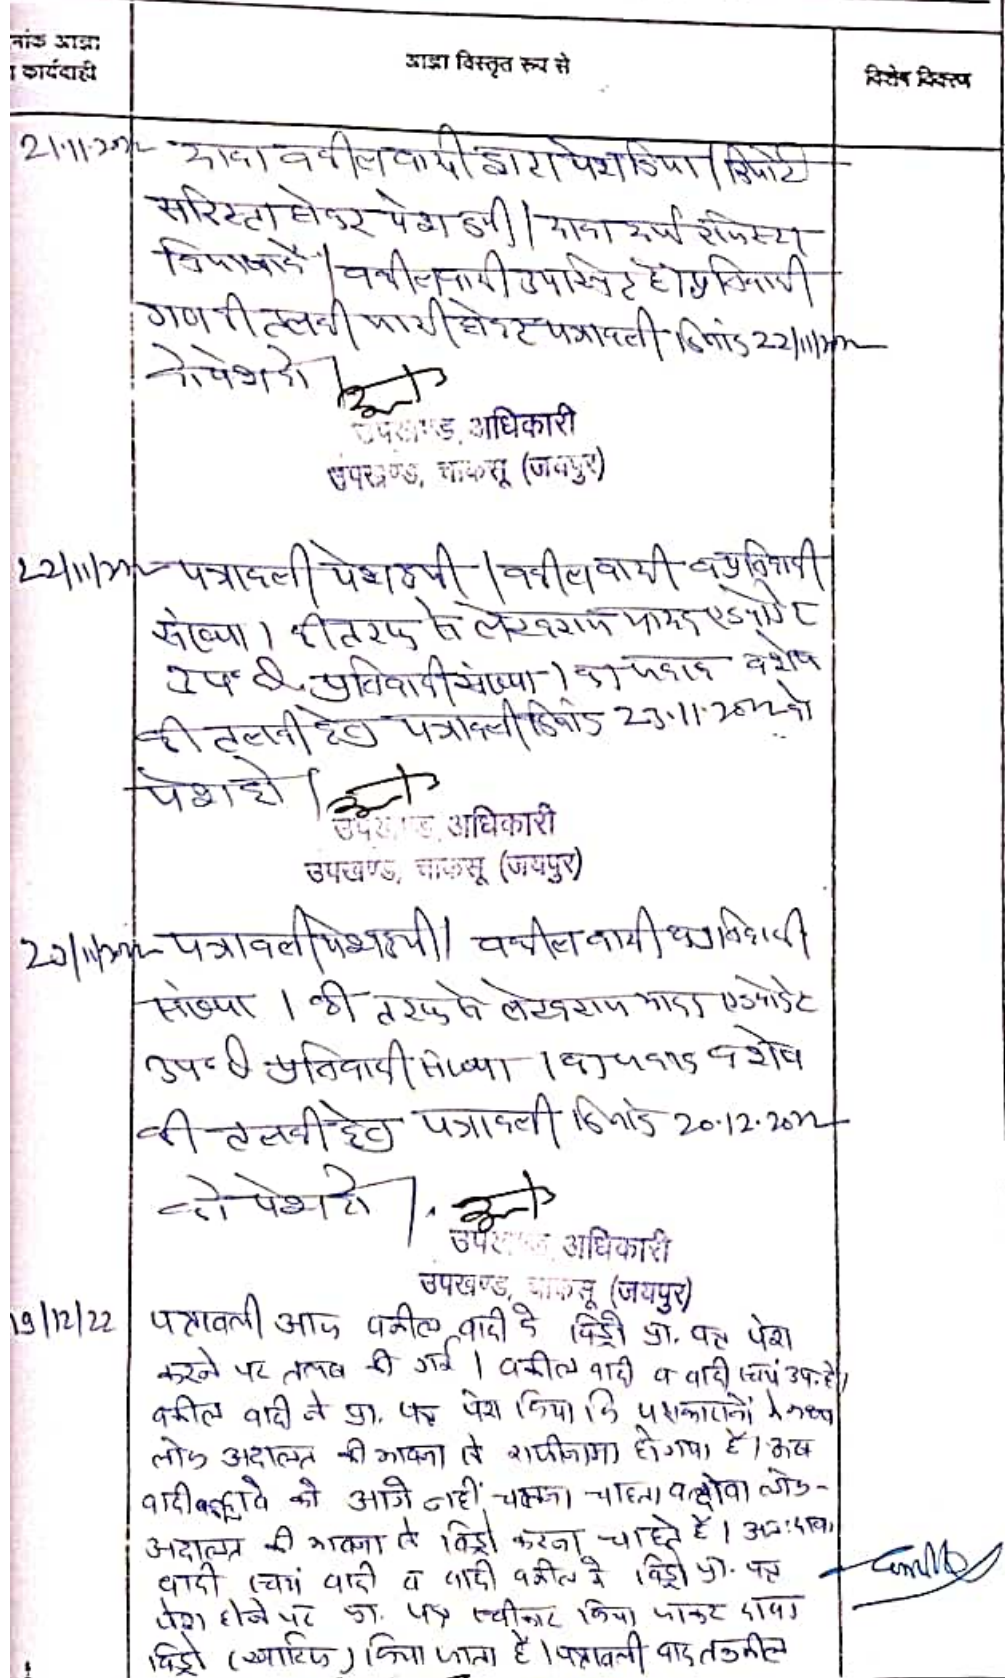 नांक आज्ञा
कार्यवाही
आज्ञा विस्तृत रूप से
विशेष विवरण
21.11.2022 दावा वकील वादी द्वारा पेश किया। रिपोर्ट
सरिस्ता होकर पेश हुयी। दावा दर्ज रजिस्टर
किया जावे। वकील वादी उपस्थित है। प्रतिवादी
गण की तलबी जारी होकर पत्रावली दिनांक 22/11/2022
को पेश हो।
उपखण्ड अधिकारी
उपखण्ड, चाकसू (जयपुर)
22/11/2022 पत्रावली पेश हुयी। वकील वादी व प्रतिवादी
संख्या 1 की तरफ से लेखराज एडवोकेट
उप० है। प्रतिवादी संख्या 1 का व शेष
की तलबी हेतु पत्रावली दिनांक 23.11.2022 को
पेश हो।
उपखण्ड अधिकारी
उपखण्ड, चाकसू (जयपुर)
23/11/2022 पत्रावली पेश हुयी। वकील वादी व प्रतिवादी
संख्या 1 की तरफ से लेखराज एडवोकेट
उप० है। प्रतिवादी संख्या 1 का व शेष
की तलबी हेतु पत्रावली दिनांक 20.12.2022
को पेश हो।
उपखण्ड अधिकारी
उपखण्ड, चाकसू (जयपुर)
19/12/22 पत्रावली आज वकील वादी के विड्रो प्रा. पत्र पेश
करने पर तलब की गई। वकील वादी व वादी स्वयं उप. है।
वकील वादी ने प्रा. पत्र पेश किया कि पक्षकारानों के मध्य
लोक अदालत की भावना से राजीनामा हो गया है। अब
वादी को आगे नहीं चलाना चाहता लोक-
अदालत की भावना से विड्रो करना चाहते है। अतः दावा
वादी स्वयं वादी व वादी वकील के विड्रो प्रा. पत्र
पेश होने पर प्रा. पत्र स्वीकार किया जाकर दावा
विड्रो (खारिज) किया जाता है। पत्रावली बाद तकमील